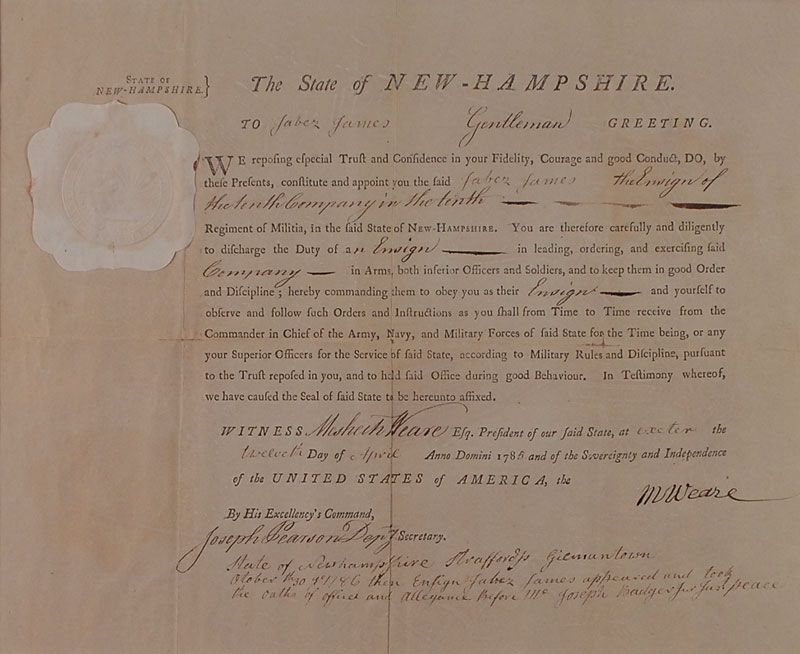 STATE OF
NEW-HAMPSHIRE. }
The State of NEW-HAMPSHIRE.
TO Jabez James Gentleman GREETING.
WE repoſing eſpecial Truſt and Confidence in your Fidelity, Courage and good Conduct, DO, by
theſe Preſents, conſtitute and appoint you the ſaid Jabez James the Ensign of
the tenth Company in the tenth
Regiment of Militia, in the ſaid State of NEW-HAMPSHIRE. You are therefore carefully and diligently
to diſcharge the Duty of an Ensign in leading, ordering, and exerciſing ſaid
Company in Arms, both inferior Officers and Soldiers, and to keep them in good Order
and Diſcipline; hereby commanding them to obey you as their Ensign and yourſelf to
obſerve and follow ſuch Orders and Inſtructions as you ſhall from Time to Time receive from the
Commander in Chief of the Army, Navy, and Military Forces of ſaid State for the Time being, or any
your Superior Officers for the Service of ſaid State, according to Military Rules and Diſcipline, purſuant
to the Truſt repoſed in you, and to hold ſaid Office during good Behaviour. In Teſtimony whereof,
we have cauſed the Seal of ſaid State to be hereunto affixed.
WITNESS Meshech Weare Eſq. Preſident of our ſaid State, at exeter the
twelvth Day of April Anno Domini 1785 and of the Sovereignty and Independence
of the UNITED STATES of AMERICA, the
M Weare
By His Excellency's Command,
Joseph Pearson Depy Secretary.
State of Newhampshire Strafford ss Gilmantown
Otober 30 1786 then Ensign Jabez James appeared and took
the oaths of office and Allegance Before me Joseph Badger Jur Jus peace